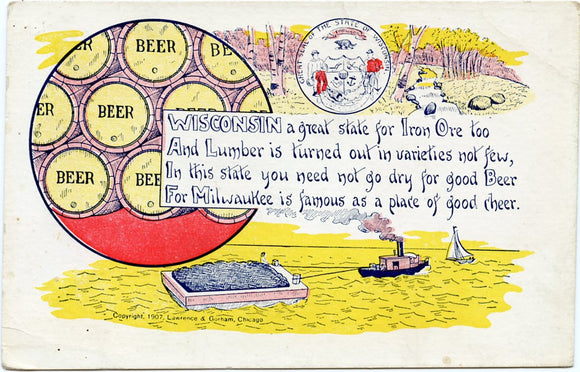 BEER
BE
ER
BEER
BEER
BEE
GREAT SEAL OF THE STATE OF WISCONSIN
WISCONSIN a great state for Iron Ore too
And Lumber is turned out in varieties not few,
In this state you need not go dry for good Beer
For Milwaukee is famous as a place of good cheer.
Copyright, 1907, Lawrence & Gorham, Chicago